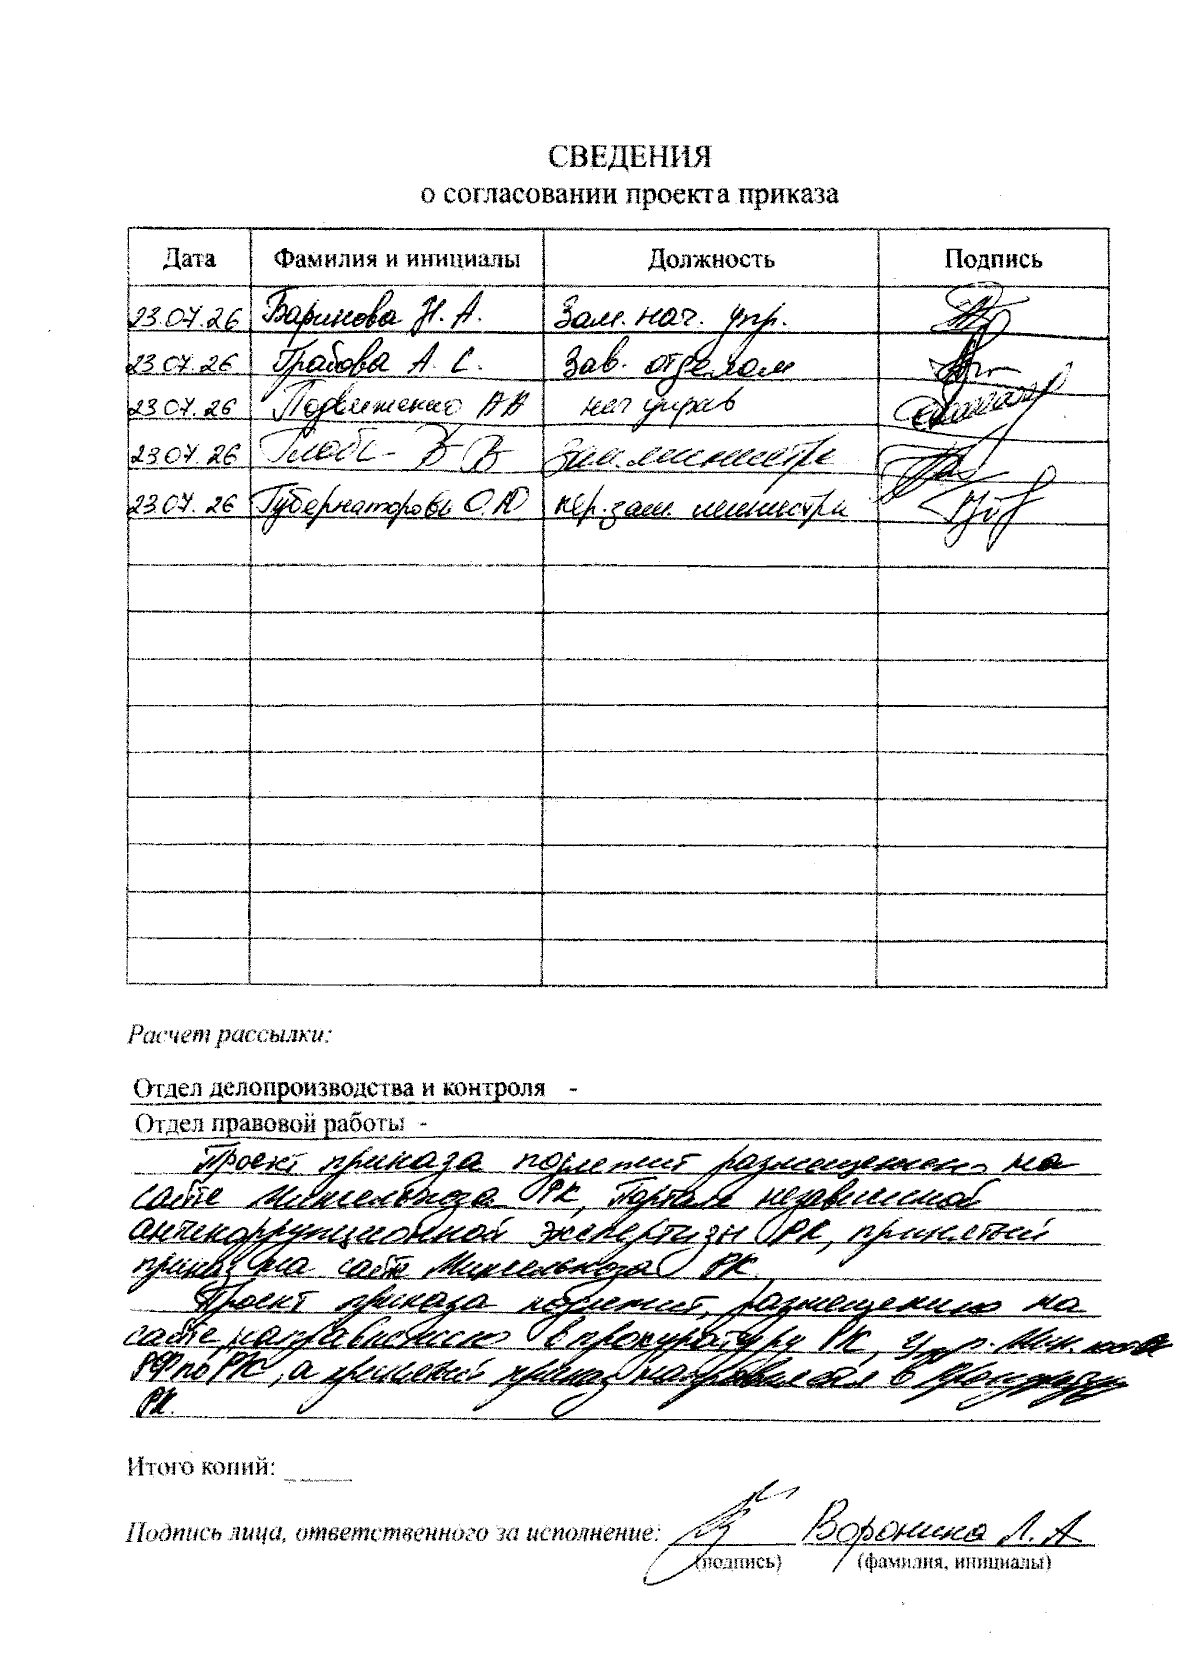 СВЕДЕНИЯ
о согласовании проекта приказа
Дата Фамилия и инициалы Должность Подпись
23.07.26 Баринова Н. А. Зам. нач. упр.
23.07.26 Грабова А. С. Зав. отделом
23.07.26 Подвиженко АА нач управ
23.07.26 В В Зам. министра
23.07.26 Губернаторова О.Ю пер. зам. министра
Расчет рассылки:
Отдел делопроизводства и контроля -
Отдел правовой работы -
Проект приказа подлежит размещению на
сайте Минсельхоза РК, Портале независимой
антикоррупционной экспертизы РК, принятый
приказ на сайте Минсельхоза РК.
Проект приказа подлежит размещению на
сайте, направлению в прокуратуру РК, Упр. Мин.
РФ по РК, а принятый приказ в прокуратуру
РК.
Итого копий:
Подпись лица, ответственного за исполнение: Воронина Л. А
(подпись) (фамилия, инициалы)